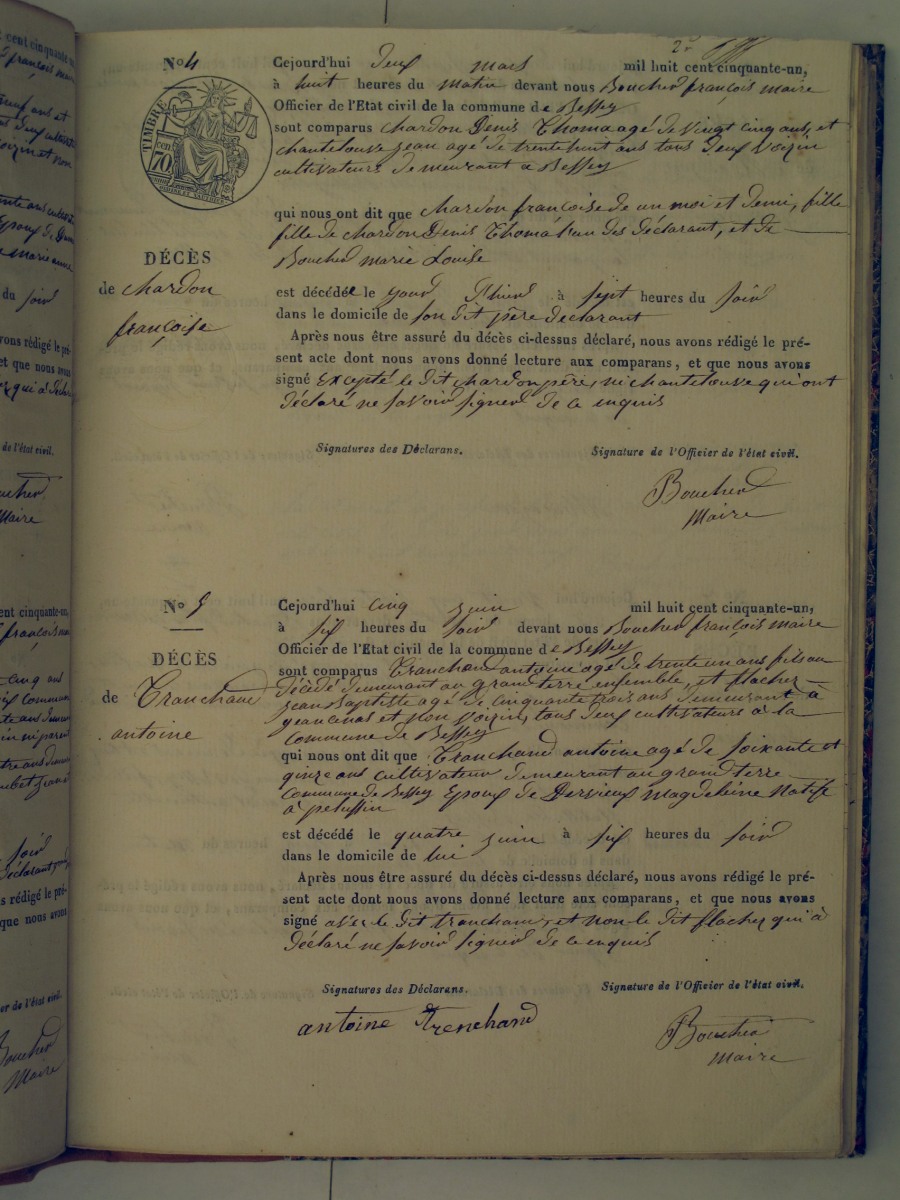 2e
No 4
TIMBRE
cen
70
Cejourd'hui deux mars mil huit cent cinquante-un,
à huit heures du matin devant nous Boucher françois maire
Officier de l'Etat civil de la commune de Bessey
sont comparus chardon Denis Thoma agé de vingt cinq ans, et
chantelouve jean agé de trente huit ans tous deux voizin
cultivateurs demeurant a Bessey
qui nous ont dit que chardon francoise de un moi et demi, fille
fille de chardon Denis Thomá l'un des déclarant, et de
Boucher marie Louise
DÉCÈS
de chardon
françoise
est décédée le jour d'hier à sept heures du soir
dans le domicile de son dit père declarant
Après nous être assuré du décès ci-dessus déclaré, nous avons rédigé le pré-
sent acte dont nous avons donné lecture aux comparans, et que nous avons
signé Excepté le dit chardon père, ni chantelouve qui ont
déclaré ne savoir signer de ce enquis
Signatures des Déclarans. Signature de l'Officier de l'état civil.
Boucher
Maire
No 5
DÉCÈS
de Tranchand
antoine
Cejourd'hui cinq juin mil huit cent cinquante-un,
à six heures du soir devant nous Boucher françois maire
Officier de l'Etat civil de la commune de Bessey
sont comparus Tranchand antoine agé de trente un ans fils au
décédé demeurant au grand terre ensemble, et flacher
jean Baptiste agé de cinquante trois ans demeurant à
et non voizin, tous deux cultivateurs à la
commune de Bessey
qui nous ont dit que Tranchand antoine agé de soixante et
qinze ans cultivateur demeurant au grand terre
commune de Bessey Epoux de Dervieux magdeleine natif
à pelussin
est décédé le quatre juin à six heures du soir
dans le domicile de lui
Après nous être assuré du décès ci-dessus déclaré, nous avons rédigé le pré-
sent acte dont nous avons donné lecture aux comparans, et que nous avons
signé avec le dit tranchant, et non le dit flacher qui a
déclaré ne savoir signer de ce enquis
Signatures des Déclarans. Signature de l'Officier de l'état civil.
antoine Trenchand
Boucher
maire